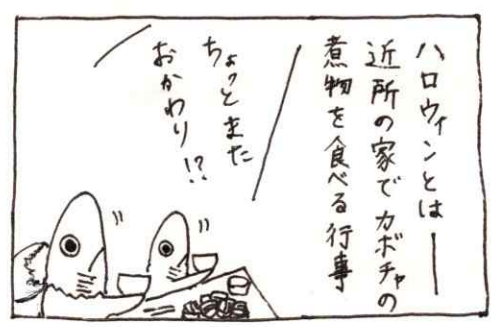 ハロウィンとは——
近所の家でカボチャの
煮物を食べる行事
ちょっとまた
おかわり!?